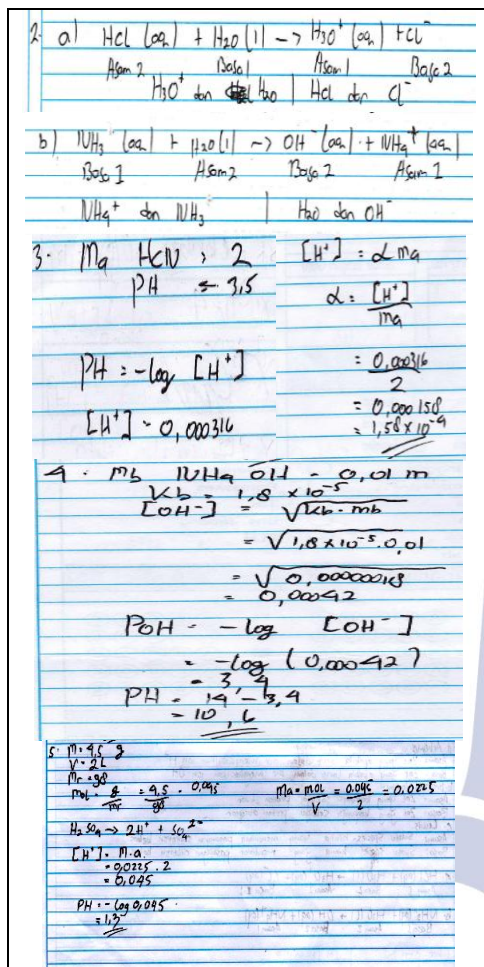 2. a) HCl (aq) + H2O (l) -> H3O+ (aq) + Cl-
Asam 2 Basa 1 Asam 1 Basa 2
H3O+ dan H2O | HCl dan Cl-
b) NH3 (aq) + H2O (l) -> OH- (aq) + NH4+ (aq)
Basa 1 Asam 2 Basa 2 Asam 1
NH4+ dan NH3 | H2O dan OH-
3. Ma HCN = 2
PH = 3,5
PH = -log [H+]
[H+] = 0,000316
[H+] = α ma
α = [H+] / ma
= 0,000316 / 2
= 0,000158
= 1,58 × 10-4
4. Mb NH4 OH = 0,01 m
Kb = 1,8 × 10-5
[OH-] = √Kb . mb
= √1,8 × 10-5 . 0,01
= √0,00000018
= 0,00042
POH = -log [OH-]
= -log (0,00042)
= 3,4
PH = 14 - 3,4
= 10,6
5. M = 4,5 g
V = 2 L
Mr = 98
Mol = g / mr = 4,5 / 98 = 0,045
Ma = mol / V = 0.045 / 2 = 0.0225
H2SO4 -> 2H+ + SO4 2-
[H+] = M.a
= 0,0225 . 2
= 0,045
PH = -log 0,045
= 1,3